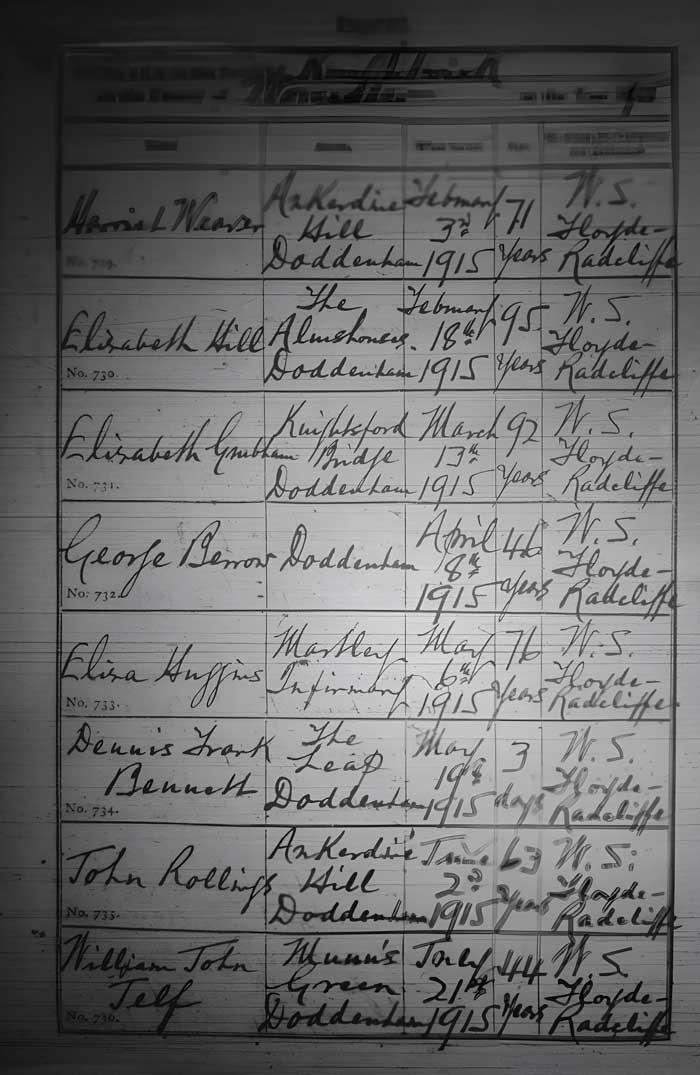 Harriet Weaver
No. 729.
Ankerdine
Hill
Doddenham
February
3rd
1915
71
Years
W. S.
Floyde-
Radcliffe
Elizabeth Hill
No. 730.
The
Almshouses.
Doddenham
February
18th
1915
95
Years
W. S.
Floyde-
Radcliffe
Elizabeth Grubham
No. 731.
Knightsford
Bridge
Doddenham
March
13th
1915
92
Years
W. S.
Floyde-
Radcliffe
George Berrow
No. 732.
Doddenham
April
8th
1915
46
Years
W. S.
Floyde-
Radcliffe
Eliza Huggins
No. 733.
Martley
Infirmary
May
6th
1915
76
Years
W. S.
Floyde-
Radcliffe
Dennis Frank
Bennett
No. 734.
The
Leap
Doddenham
May
19th
1915
3
days
W. S.
Floyde-
Radcliffe
John Rollings
No. 735.
Ankerdine
Hill
Doddenham
June
2nd
1915
63
Years
W. S.
Floyde-
Radcliffe
William John
Jelf
No. 736.
Munn's
Green
Doddenham
July
21st
1915
44
Years
W. S.
Floyde-
Radcliffe